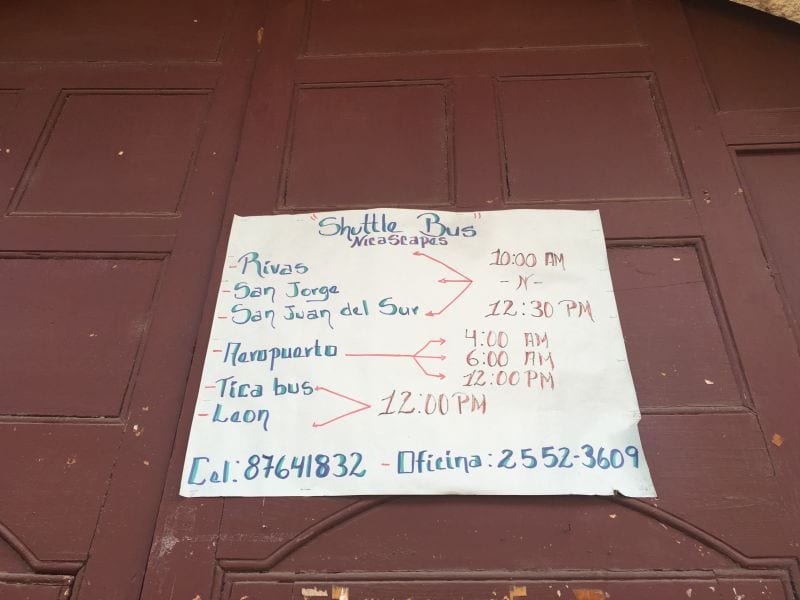 "Shuttle Bus"
NicaScapes
- Rivas
- San Jorge
- San Juan del Sur
10:00 AM
- N -
12:30 PM
- Aeropuerto
4:00 AM
6:00 AM
12:00 PM
- Tica bus
- Leon
12:00 PM
Cel: 87641832 - Oficina: 2552-3609